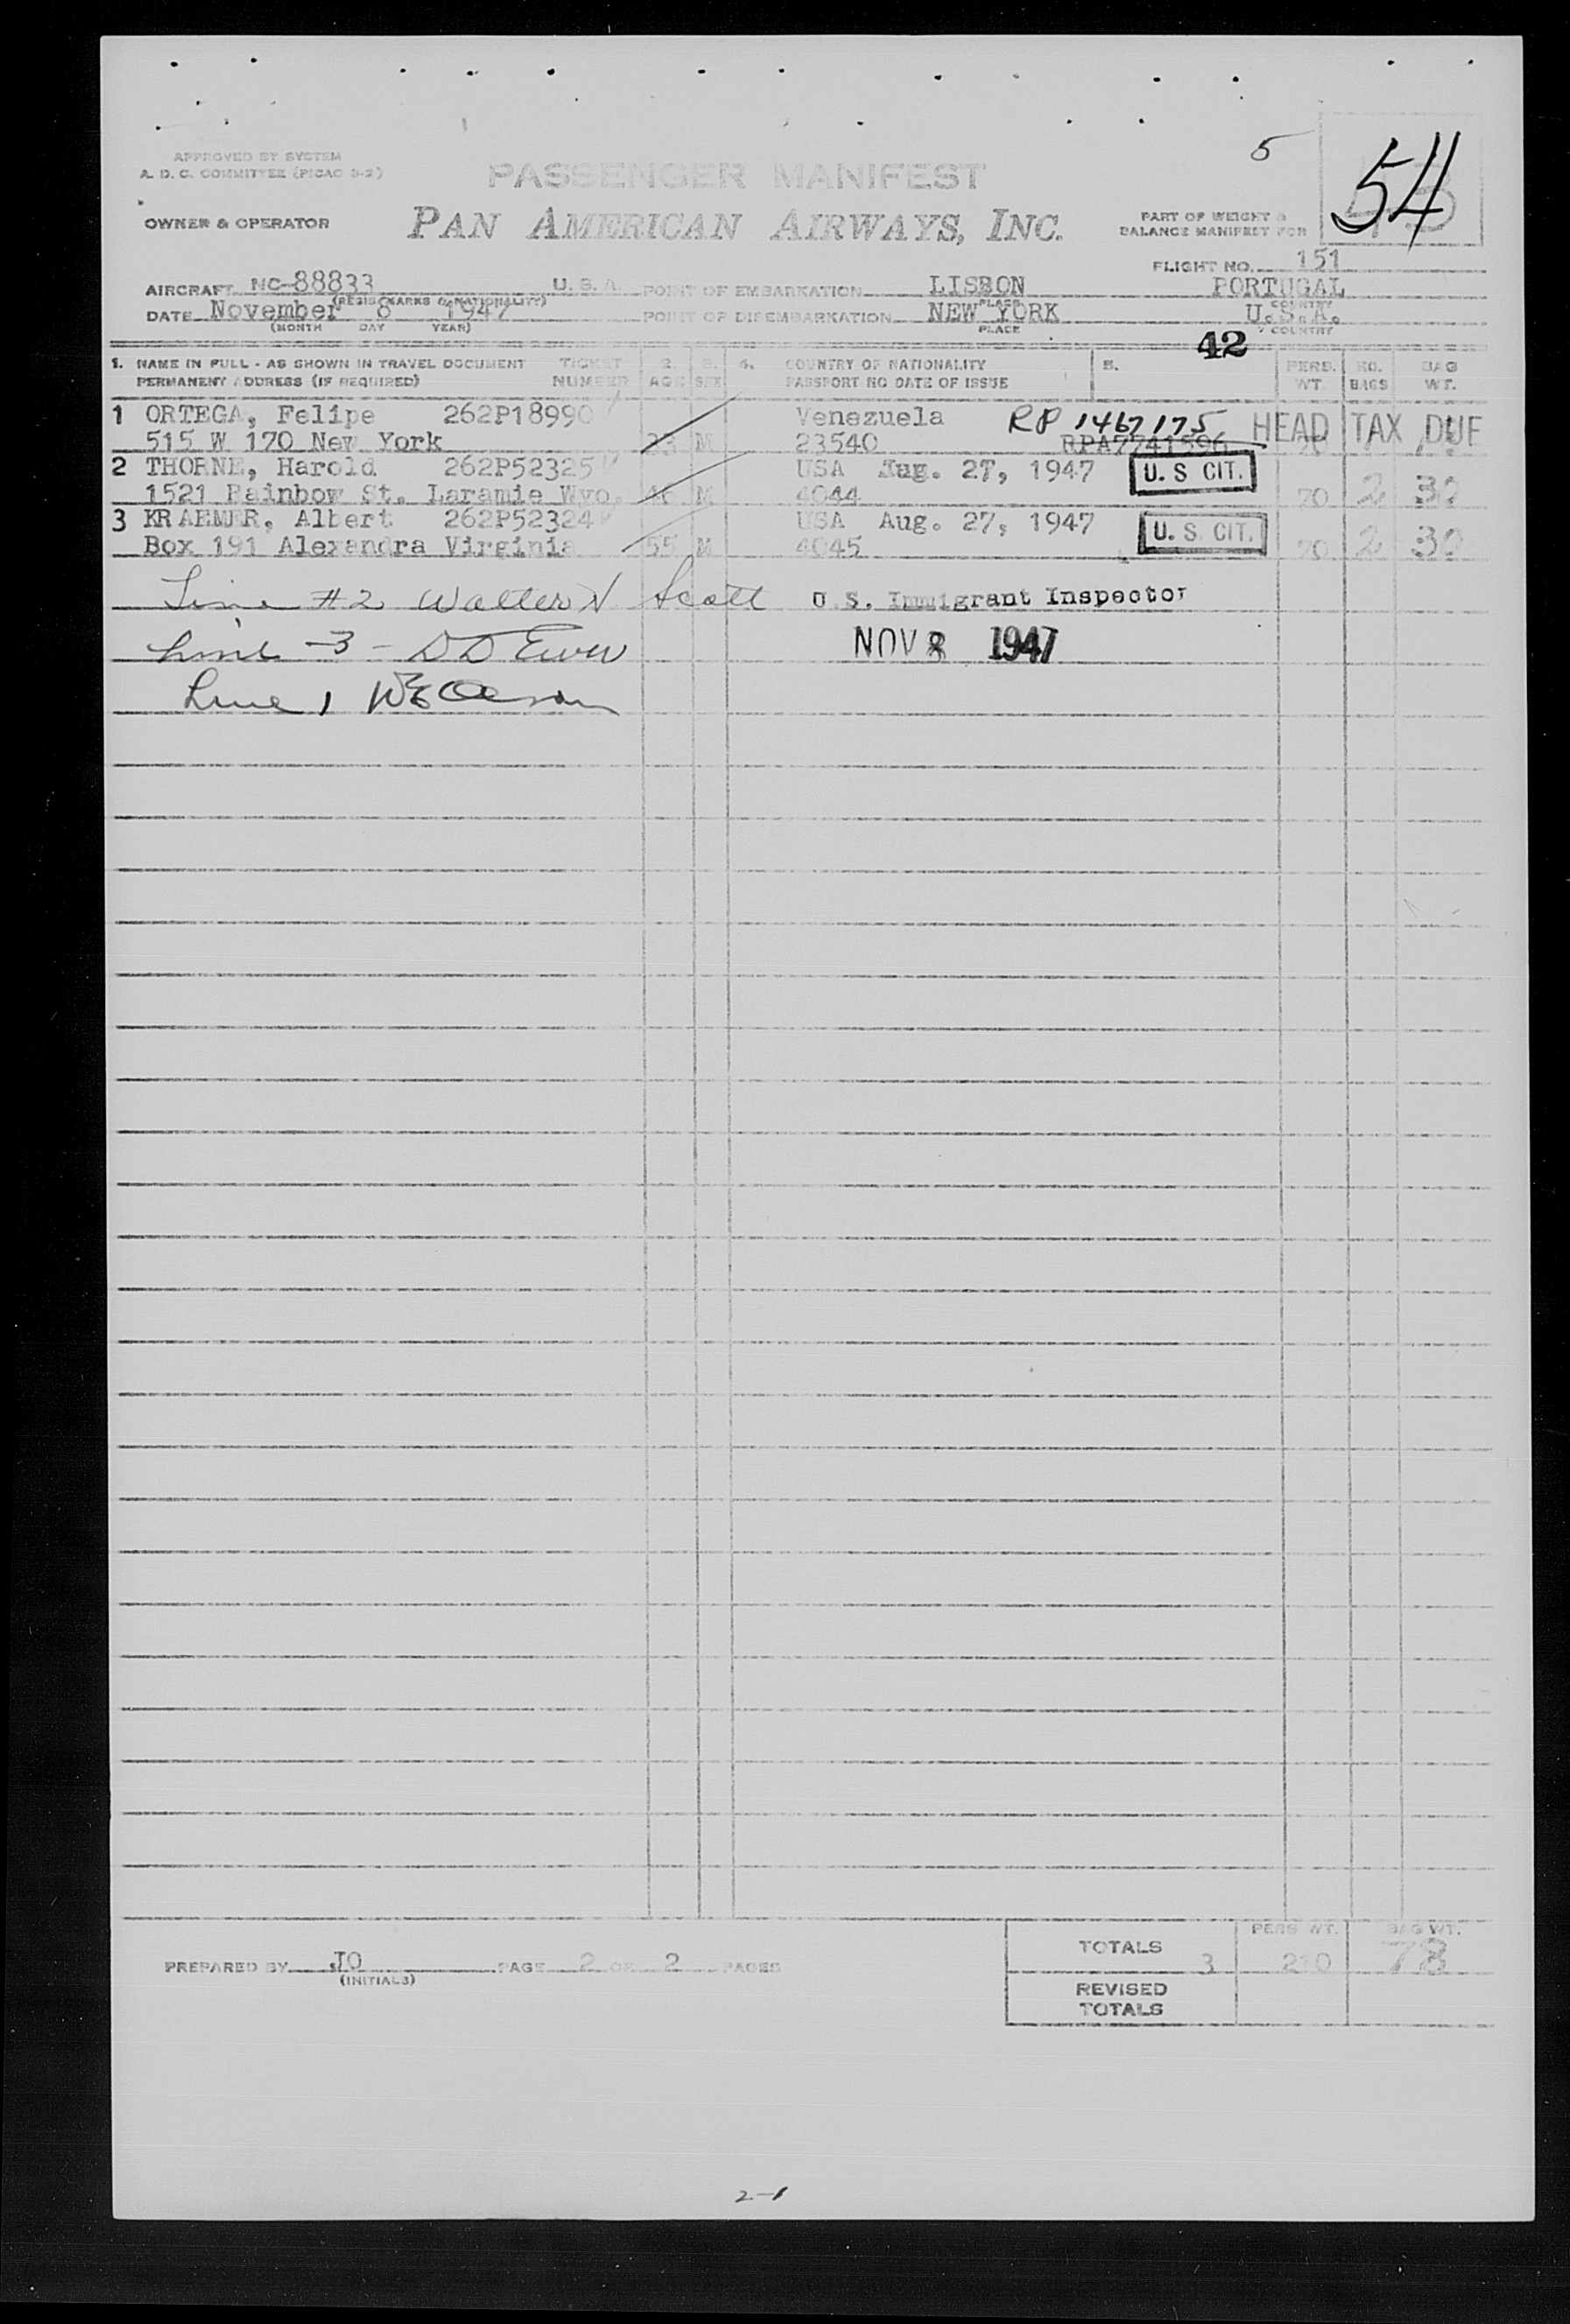 5
54
APPROVED BY SYSTEM
A. D. C. COMMITTEE (PICAO 3-2)
PASSENGER MANIFEST
OWNER & OPERATOR
PAN AMERICAN AIRWAYS, INC.
PART OF WEIGHT &
BALANCE MANIFEST FOR
FLIGHT NO. 151
AIRCRAFT NC-88833 U. S. A. POINT OF EMBARKATION LISBON PORTUGAL
(REGIS. MARKS & NATIONALITY) PLACE COUNTRY
DATE November 8 1947 POINT OF DISEMBARKATION NEW YORK U.S.A.
(MONTH DAY YEAR) PLACE COUNTRY
42
1. NAME IN FULL - AS SHOWN IN TRAVEL DOCUMENT TICKET 2. 3. 4. COUNTRY OF NATIONALITY 5. PERS. NO. BAG
PERMANENT ADDRESS (IF REQUIRED) NUMBER AGE SEX PASSPORT NO DATE OF ISSUE WT. BAGS WT.
1 ORTEGA, Felipe 262P18990 Venezuela RP 1467175 HEAD TAX DUE
515 W 170 New York 23 M 23540 RPA7741596
2 THORNE, Harold 262P52325 USA Aug. 27, 1947 U. S CIT.
1521 Rainbow St. Laramie Wyo. 46 M 4044 70 2 30
3 KRAEMER, Albert 262P52324 USA Aug. 27, 1947 U. S. CIT.
Box 191 Alexandra Virginia 55 M 4045 70 2 30
Line #2 Walter N Scott U. S. Immigrant Inspector
Line -3 - DD NOV 8 1947
Line 1
PREPARED BY JO PAGE 2 OF 2 PAGES
(INITIALS)
PERS WT. BAG WT.
TOTALS 3 210 78
REVISED
TOTALS
2-1